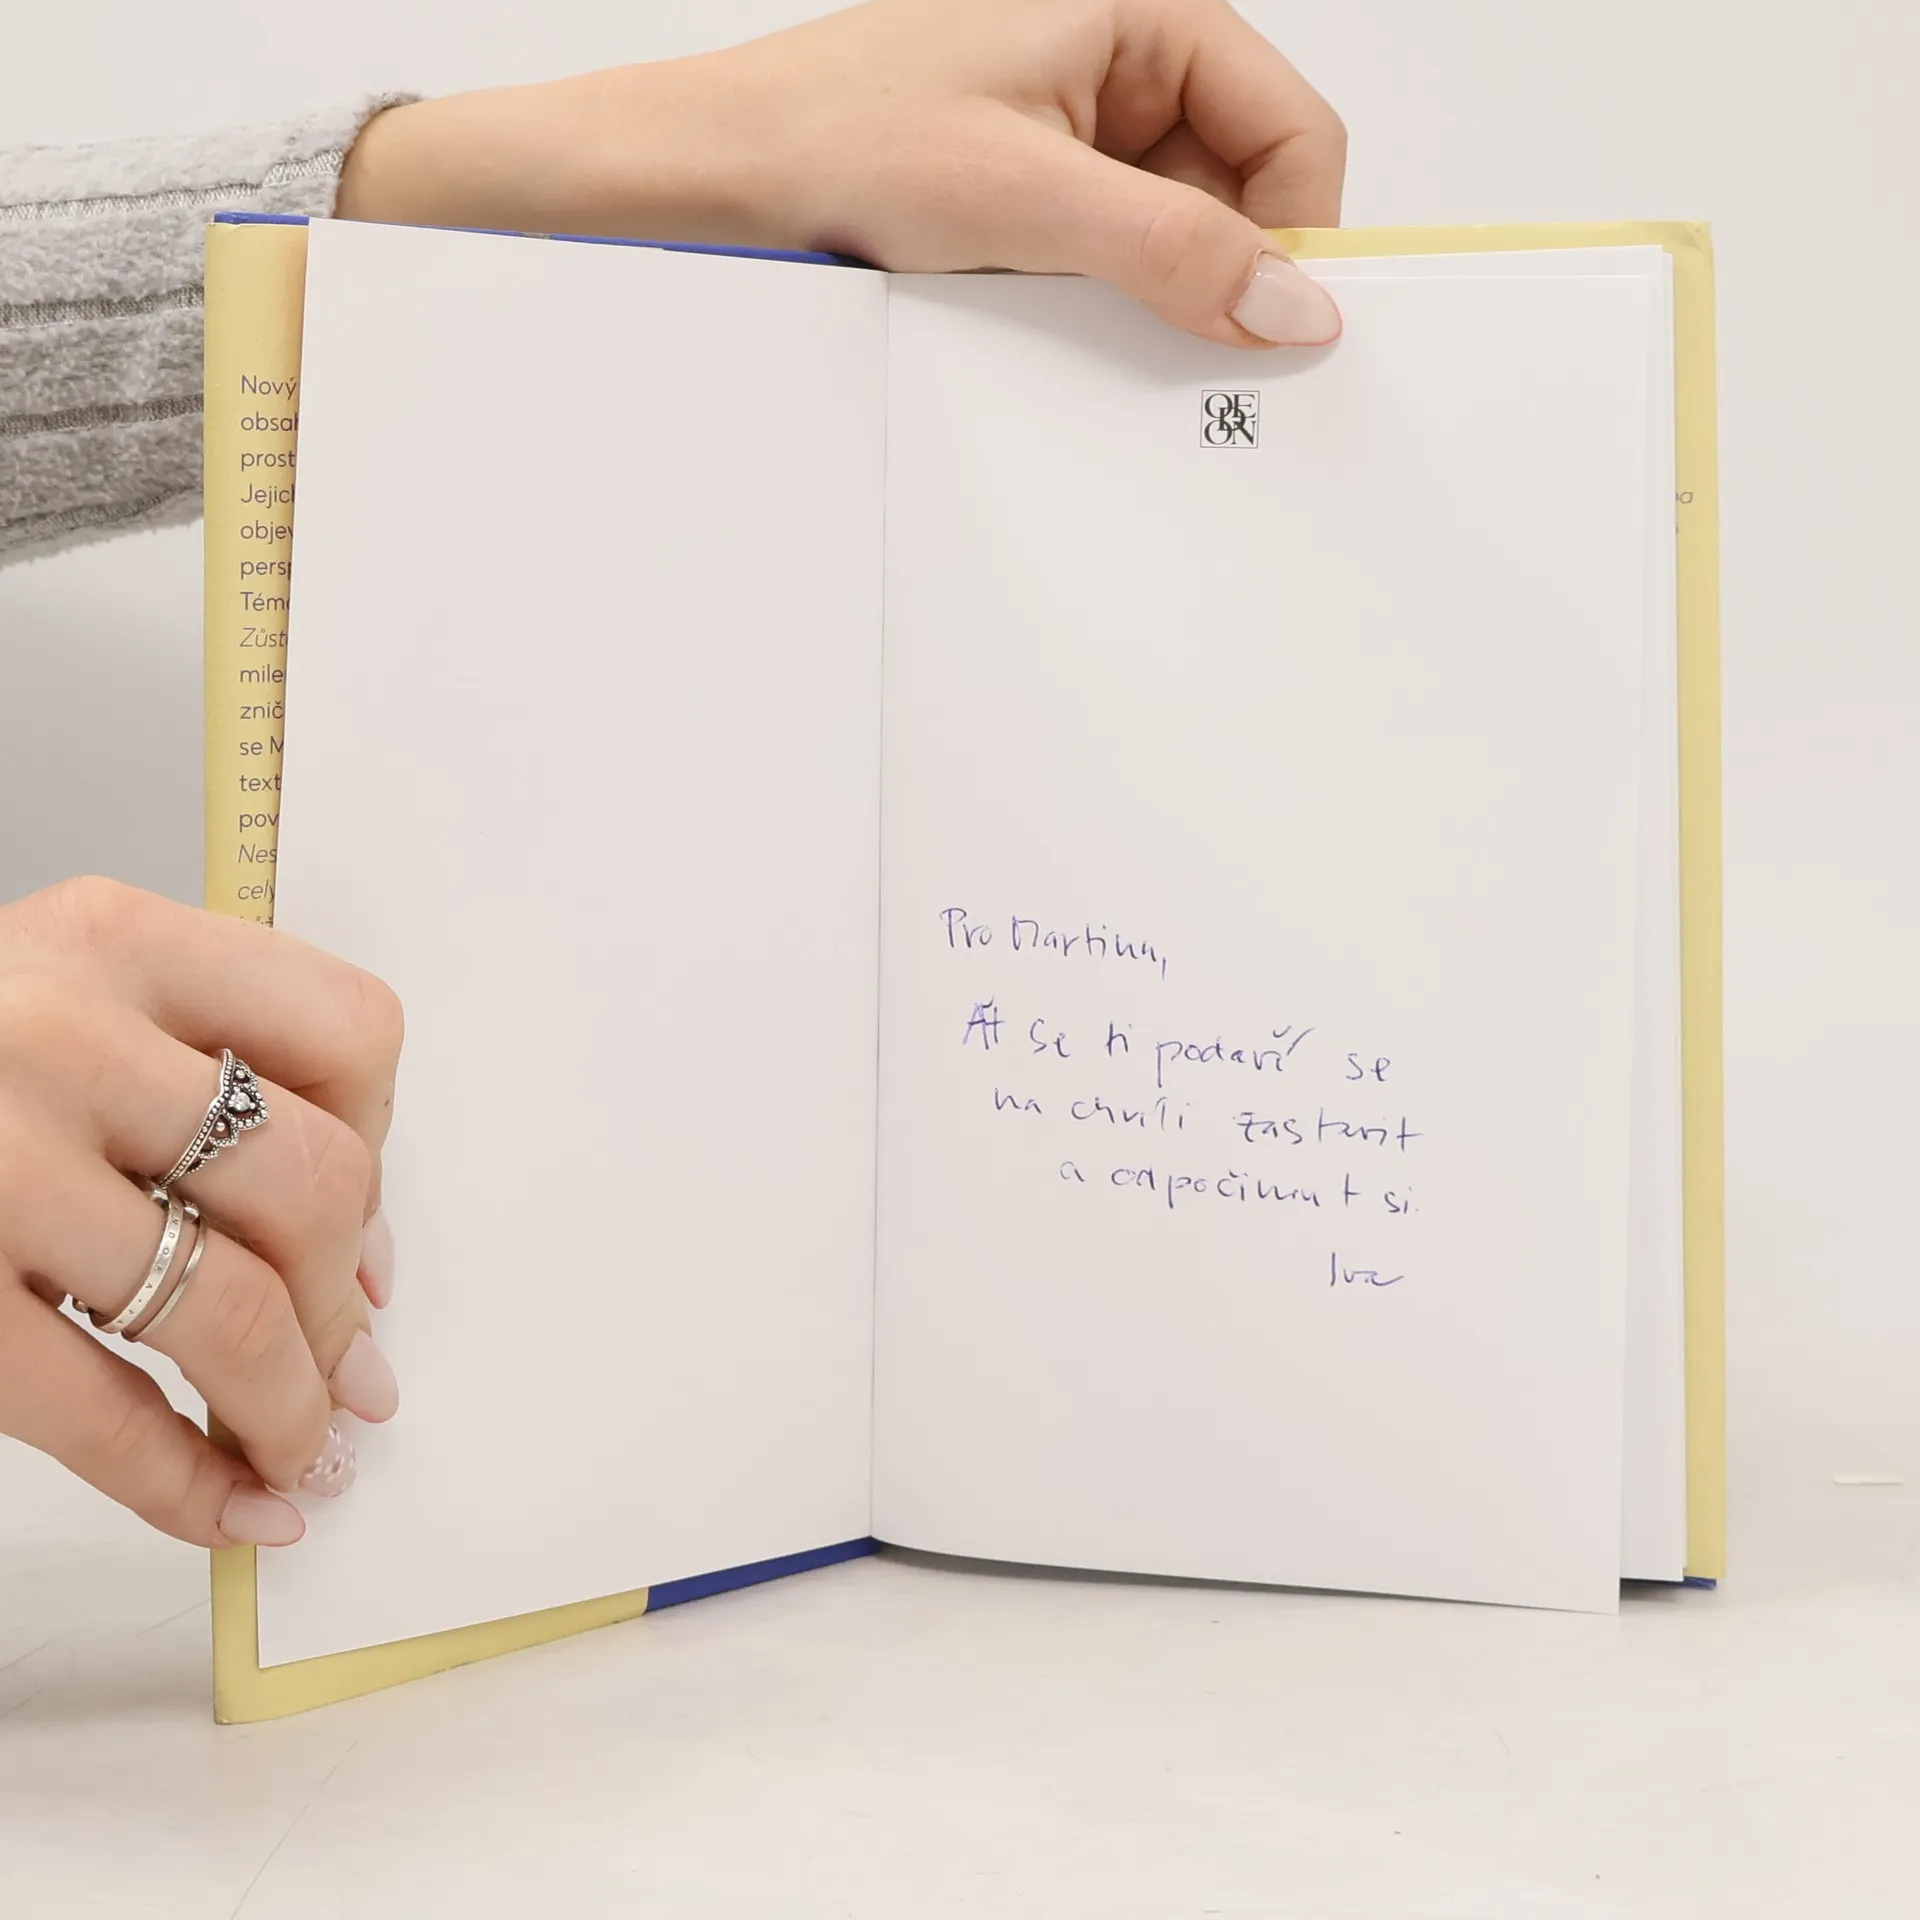 Nový
obsah
prost
Jejich
objev
persp
Téma
Zůst
mile
znič
se M
text
pov
Nes
cely
OE
D
ON
Pro Martinu,
Ať se ti podaří se
na chvíli zastavit
a odpočinout si.
Iva